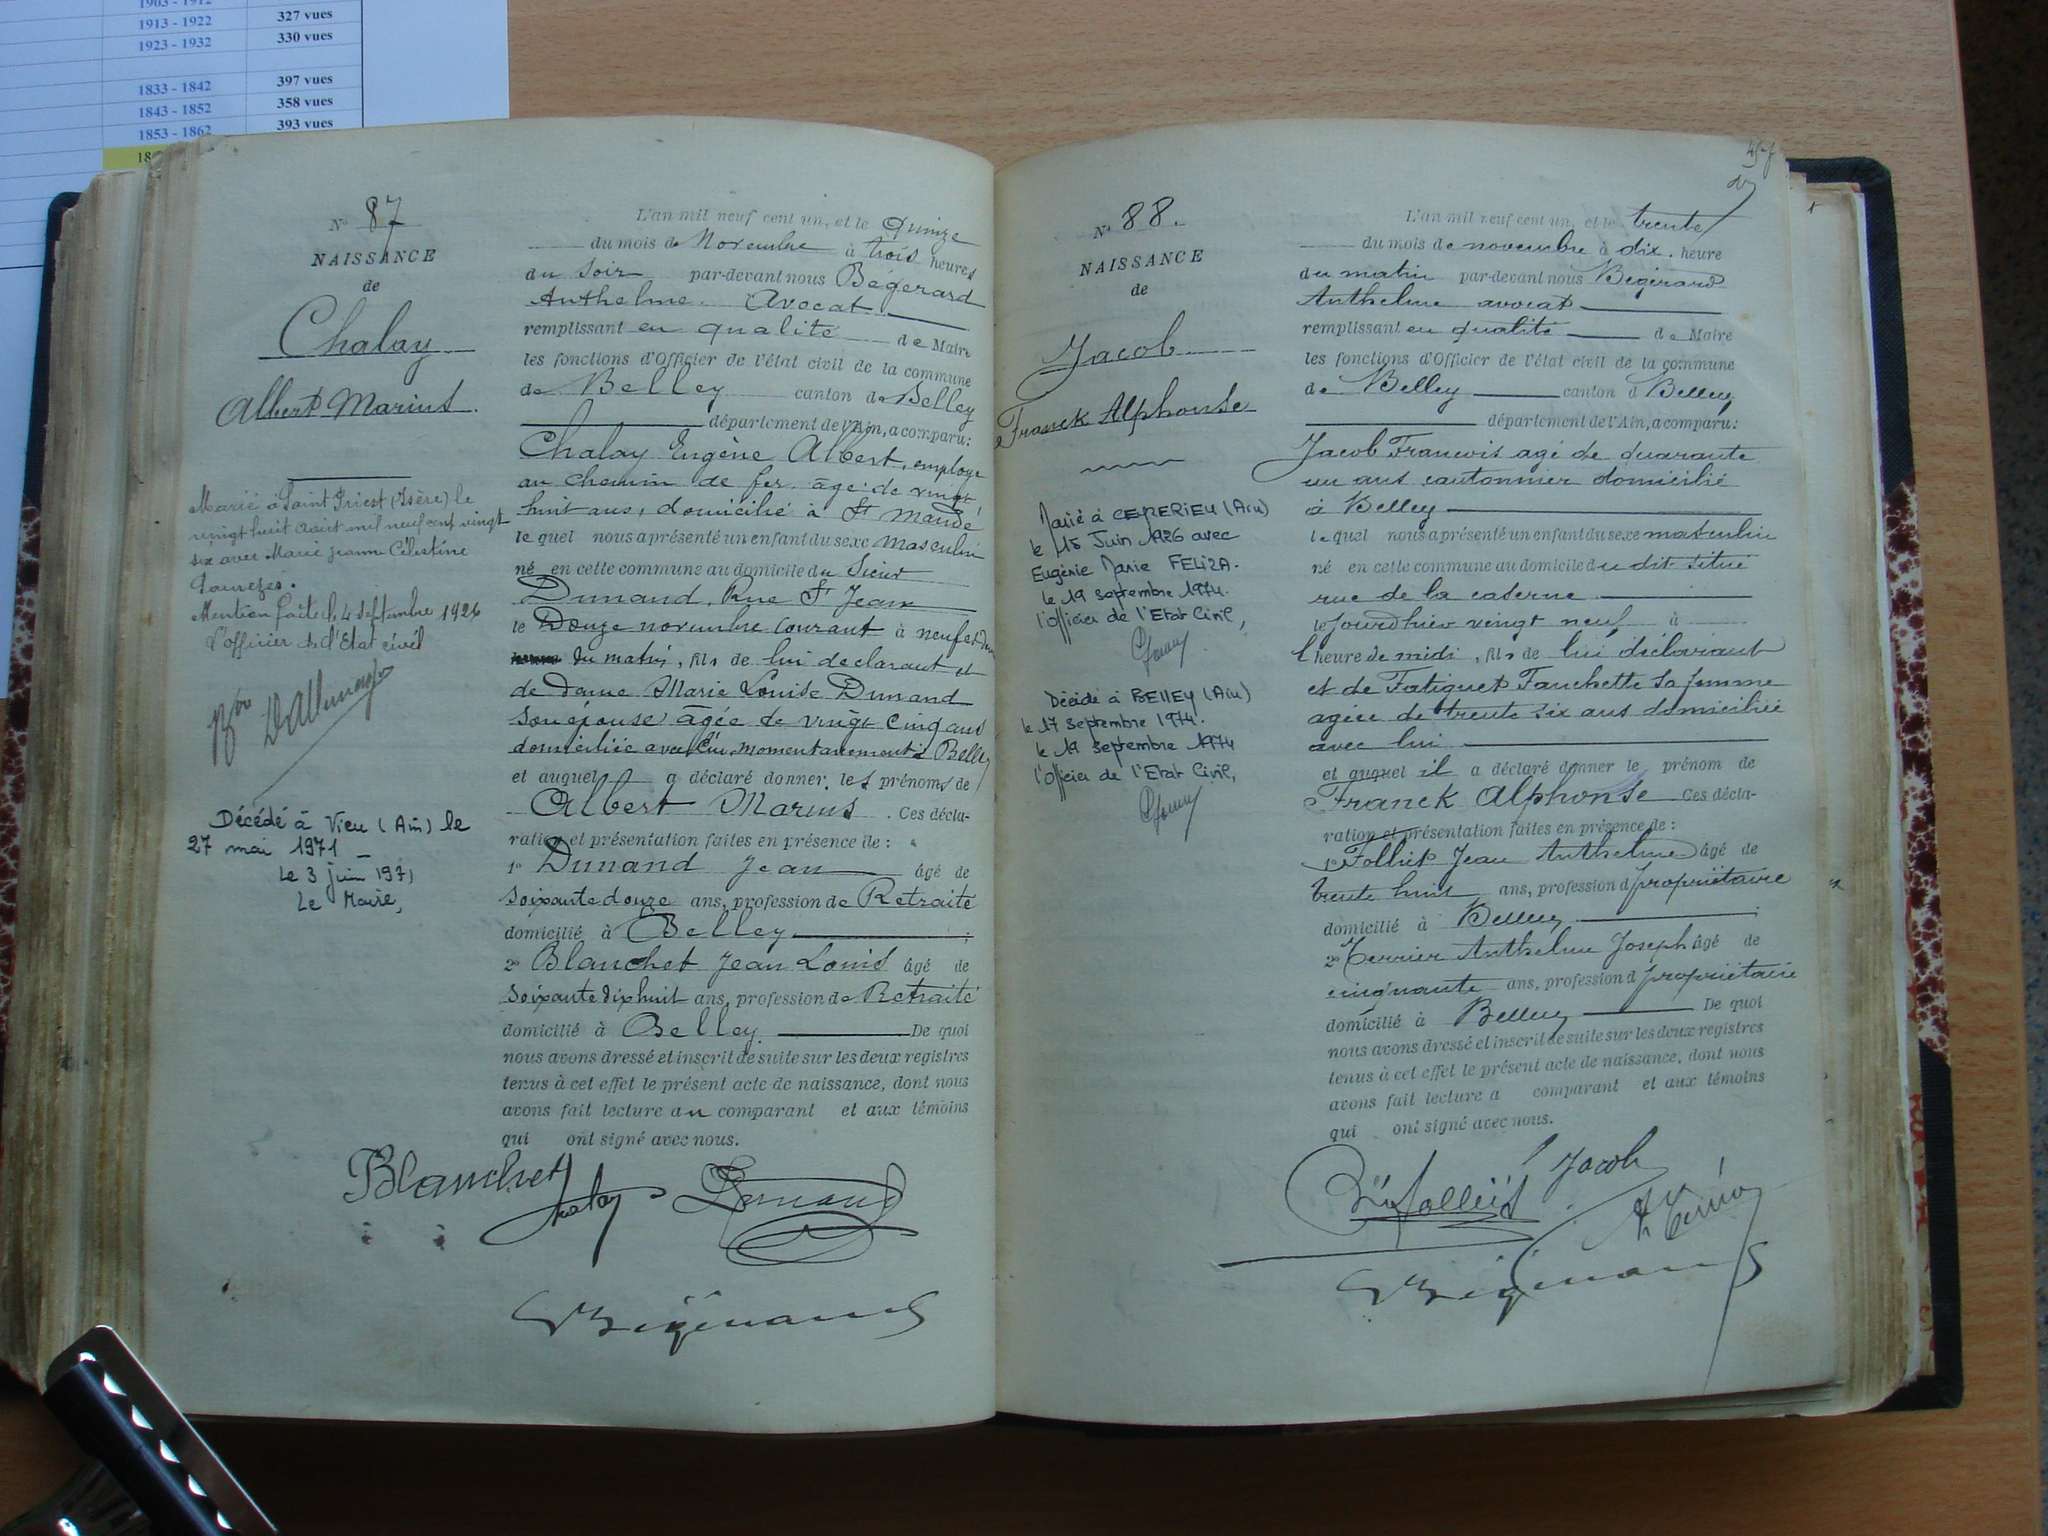 1903 - 1912
1913 - 1922 327 vues
1923 - 1932 330 vues
1833 - 1842 397 vues
1843 - 1852 358 vues
1853 - 1862 393 vues
No 87
NAISSANCE
de
Chalay
Albert Marius.
Marié à Saint Priest (Isère) le
vingt huit août mil neuf cent vingt
six avec Marie Jeanne Célestine
Mention faite le 4 septembre 1926
L'officier de l'Etat civil
Décédé à Vieu (Ain) le
27 mai 1971
Le 3 juin 1971
Le Maire,
L'an mil neuf cent un, et le Quinze
du mois de Novembre à trois heures
du Soir par-devant nous Bégérard
Anthelme. Avocat
remplissant en qualité de Maire
les fonctions d'Officier de l'état civil de la commune
de Belley canton de Belley
département de l'Ain, a comparu:
Chalay Eugène Albert, employé
au Chemin de fer âgé de vingt
huit ans, domicilié à St Mandé
le quel nous a présenté un enfant du sexe masculin
né en cette commune au domicile du Sieur
Dunand, Rue St Jean
le Douze novembre courant à neuf et
du matin, fils de lui déclarant et
de dame Marie Louise Dunand
son épouse âgée de vingt cinq ans
domiciliée avec lui momentanement à Belley
et auquel a déclaré donner les prénoms de
Albert Marius. Ces décla-
ration et présentation faites en présence de :
1º Dunand Jean âgé de
soixante douze ans, profession de Retraité
domicilié à Belley ;
2º Blanchet Jean Louis âgé de
soixante dix huit ans, profession de Retraité
domicilié à Belley. De quoi
nous avons dressé et inscrit de suite sur les deux registres
tenus à cet effet le présent acte de naissance, dont nous
avons fait lecture au comparant et aux témoins
qui ont signé avec nous.
Blanchet Chalay Dunand
Bégérard
457
No 88.
NAISSANCE
de
Jacob
Franck Alphonse
Marié à CEYZERIEU (Ain)
le 15 Juin 1926 avec
Eugénie Marie FELIZA.
le 19 septembre 1974.
l'officier de l'Etat Civil,
Décédé à BELLEY (Ain)
le 17 septembre 1974.
le 19 septembre 1974
l'officier de l'Etat Civil,
L'an mil neuf cent un, et le trente
du mois de novembre à dix heure
du matin par-devant nous Bégérard
Anthelme avocat
remplissant en qualité de Maire
les fonctions d'Officier de l'état civil de la commune
de Belley canton d Belley
département de l'Ain, a comparu:
Jacob Francois agé de quarante
un ans cantonnier domicilié
à Belley
le quel nous a présenté un enfant du sexe masculin
né en cette commune au domicile du dit situé
rue de la caserne
le jourdhier vingt neuf à
l heure de midi, fils de lui déclarant
et de Fatiguet Fanchette sa femme
agée de trente six ans domiciliée
avec lui
et auquel il a déclaré donner le prénom de
Franck Alphonse Ces décla-
ration et présentation faites en présence de :
1º Folliet Jean Anthelme âgé de
trente huit ans, profession d propriétaire
domicilié à Belley ;
2º Terrier Anthelme Joseph âgé de
cinquante ans, profession d propriétaire
domicilié à Belley De quoi
nous avons dressé et inscrit de suite sur les deux registres
tenus à cet effet le présent acte de naissance, dont nous
avons fait lecture a comparant et aux témoins
qui ont signé avec nous.
Folliet Jacob
Bégérard